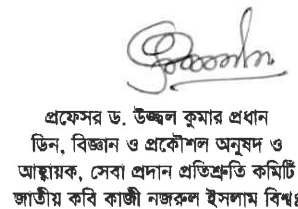 প্রফেসর ড. উজ্জ্বল কুমার প্রধান
ডিন, বিজ্ঞান ও প্রকৌশল অনুষদ ও
আহ্বায়ক, সেবা প্রদান প্রতিশ্রুতি কমিটি
জাতীয় কবি কাজী নজরুল ইসলাম